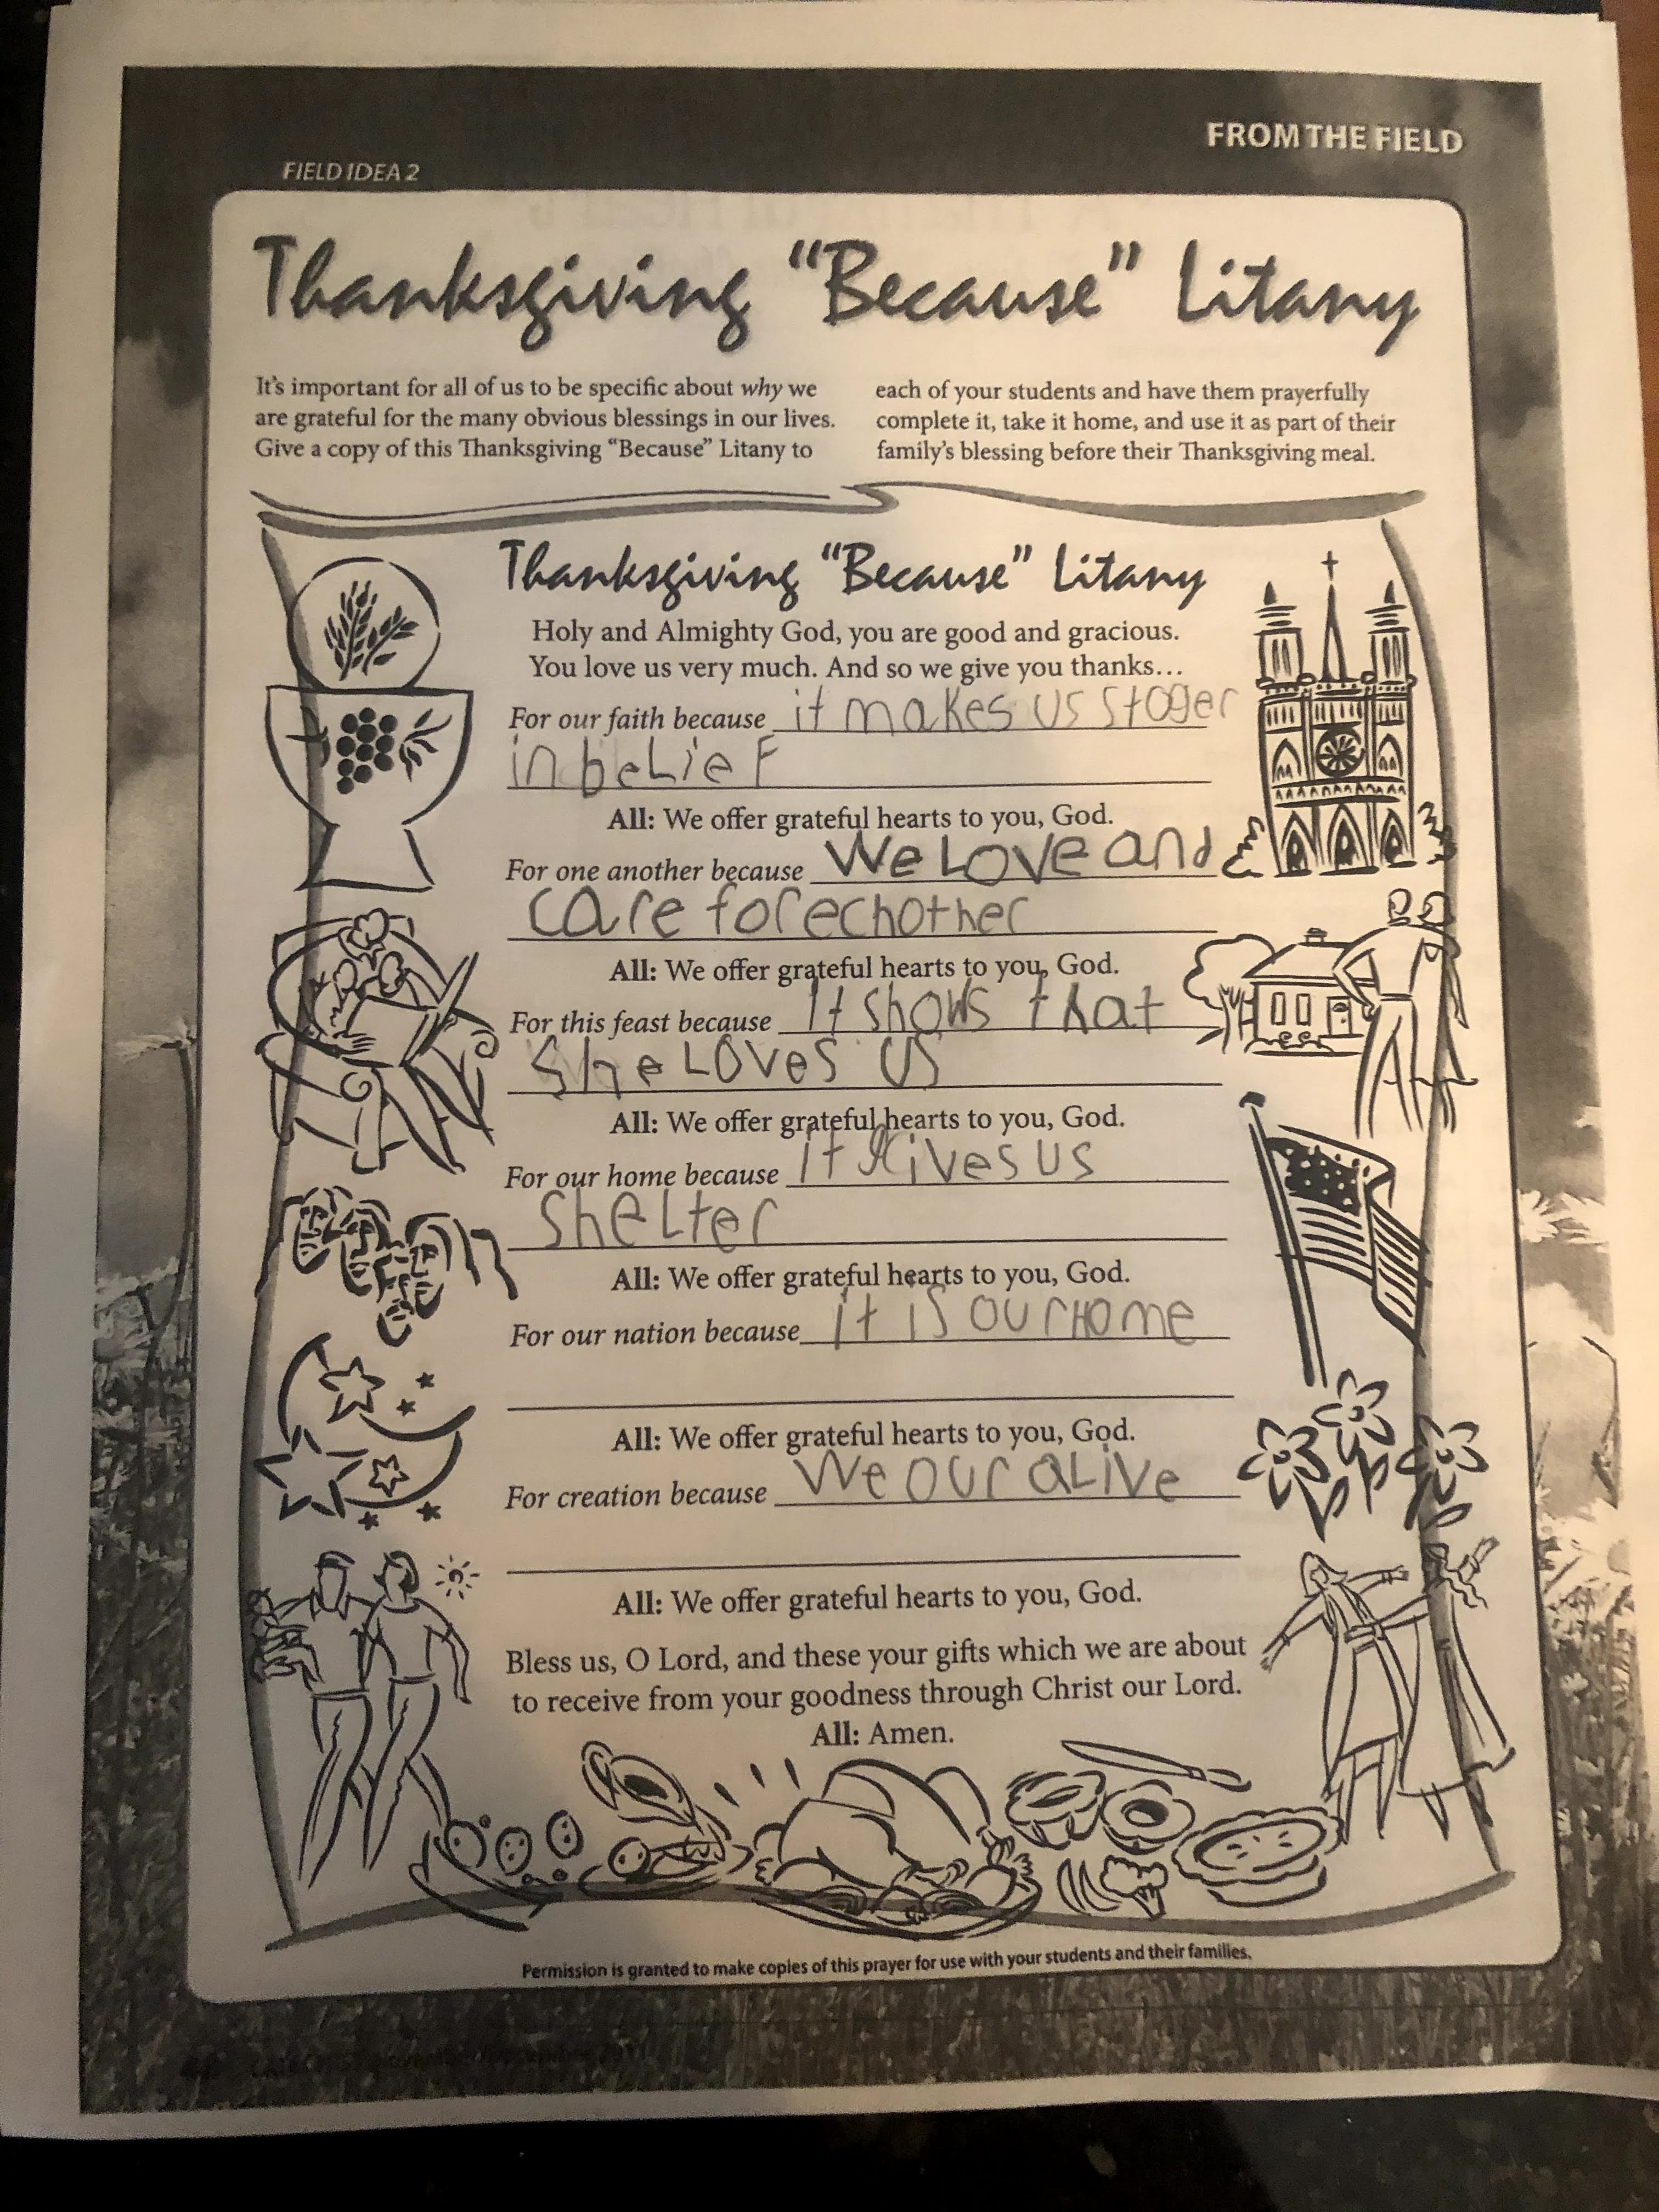 FROM THE FIELD
FIELD IDEA 2
Thanksgiving “Because” Litany
It’s important for all of us to be specific about why we
are grateful for the many obvious blessings in our lives.
Give a copy of this Thanksgiving “Because” Litany to
each of your students and have them prayerfully
complete it, take it home, and use it as part of their
family’s blessing before their Thanksgiving meal.
Thanksgiving “Because” Litany
Holy and Almighty God, you are good and gracious.
You love us very much. And so we give you thanks…
For our faith because it makes us stoger
in belief
All: We offer grateful hearts to you, God.
For one another because We Love and
care for echother
All: We offer grateful hearts to you, God.
For this feast because It shows that
She Loves us
All: We offer grateful hearts to you, God.
For our home because It Gives us
SheLter
All: We offer grateful hearts to you, God.
For our nation because it is our Home
All: We offer grateful hearts to you, God.
For creation because We our aLive
All: We offer grateful hearts to you, God.
Bless us, O Lord, and these your gifts which we are about
to receive from your goodness through Christ our Lord.
All: Amen.
Permission is granted to make copies of this prayer for use with your students and their families.